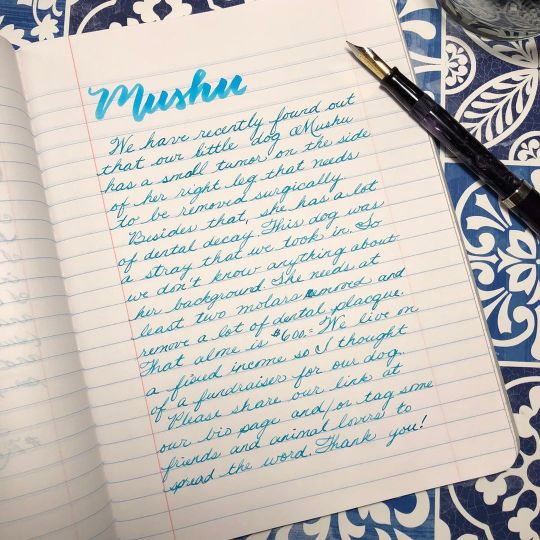 Mushu
We have recently found out
that our little dog Mushu
has a small tumor on the side
of her right leg that needs
to be removed surgically
Besides that, she has a lot
of dental decay. This dog was
a stray that we took in. So
we don't know anything about
her background. She needs at
least two molars removed and
remove a lot of dental plaque.
That alone is $600.= We live on
a fixed income so I thought
of a fundraiser for our dog.
Please share our link at
our bio page and/or tag some
friends and animal lovers to
spread the word. Thank you!